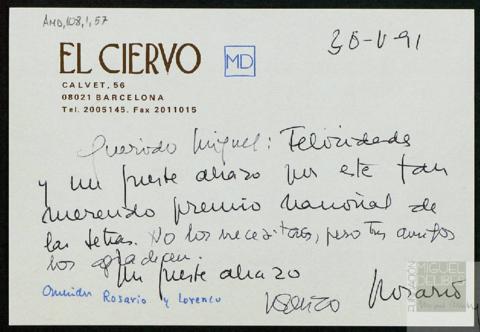 AMD,108,1,57
EL CIERVO
MD
30-V-91
CALVET, 56
08021 BARCELONA
Tel. 2005145. Fax 2011015
Querido Miguel: Felicidades
y un fuerte abrazo por este tan
merecido premio nacional de
las letras. No los necesitas, pero tus amigos
los agradecen.
Un fuerte abrazo
Lorenzo Rosario
Rosario y Lorenzo
FUNDACIÓN
MIGUEL
DELIBES